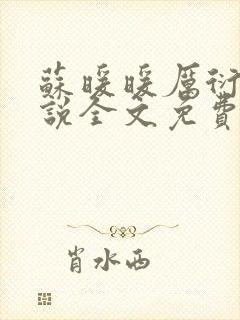 蘇暖暖厲衍
說全文免費
肖水西